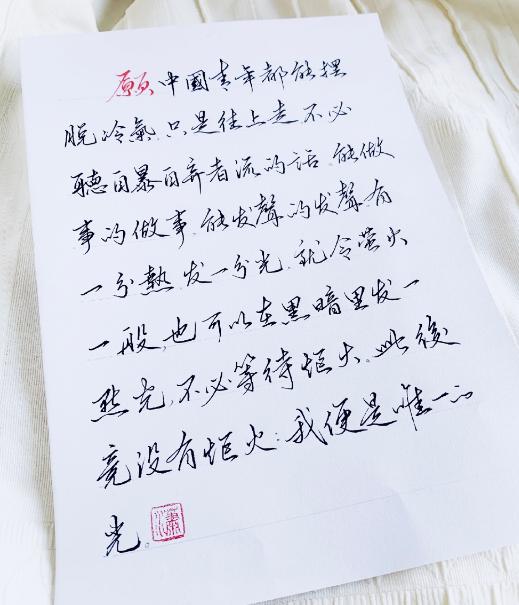 願中國青年都能摆
脱冷氣,只是往上走,不必
聽自暴自弃者流的话.能做
事的做事,能发聲的发聲.有
一分熱,发一分光.就令萤火
一般,也可以在黑暗里发一
点光,不必等待炬火.此後
竟没有炬火:我便是唯一的
光。